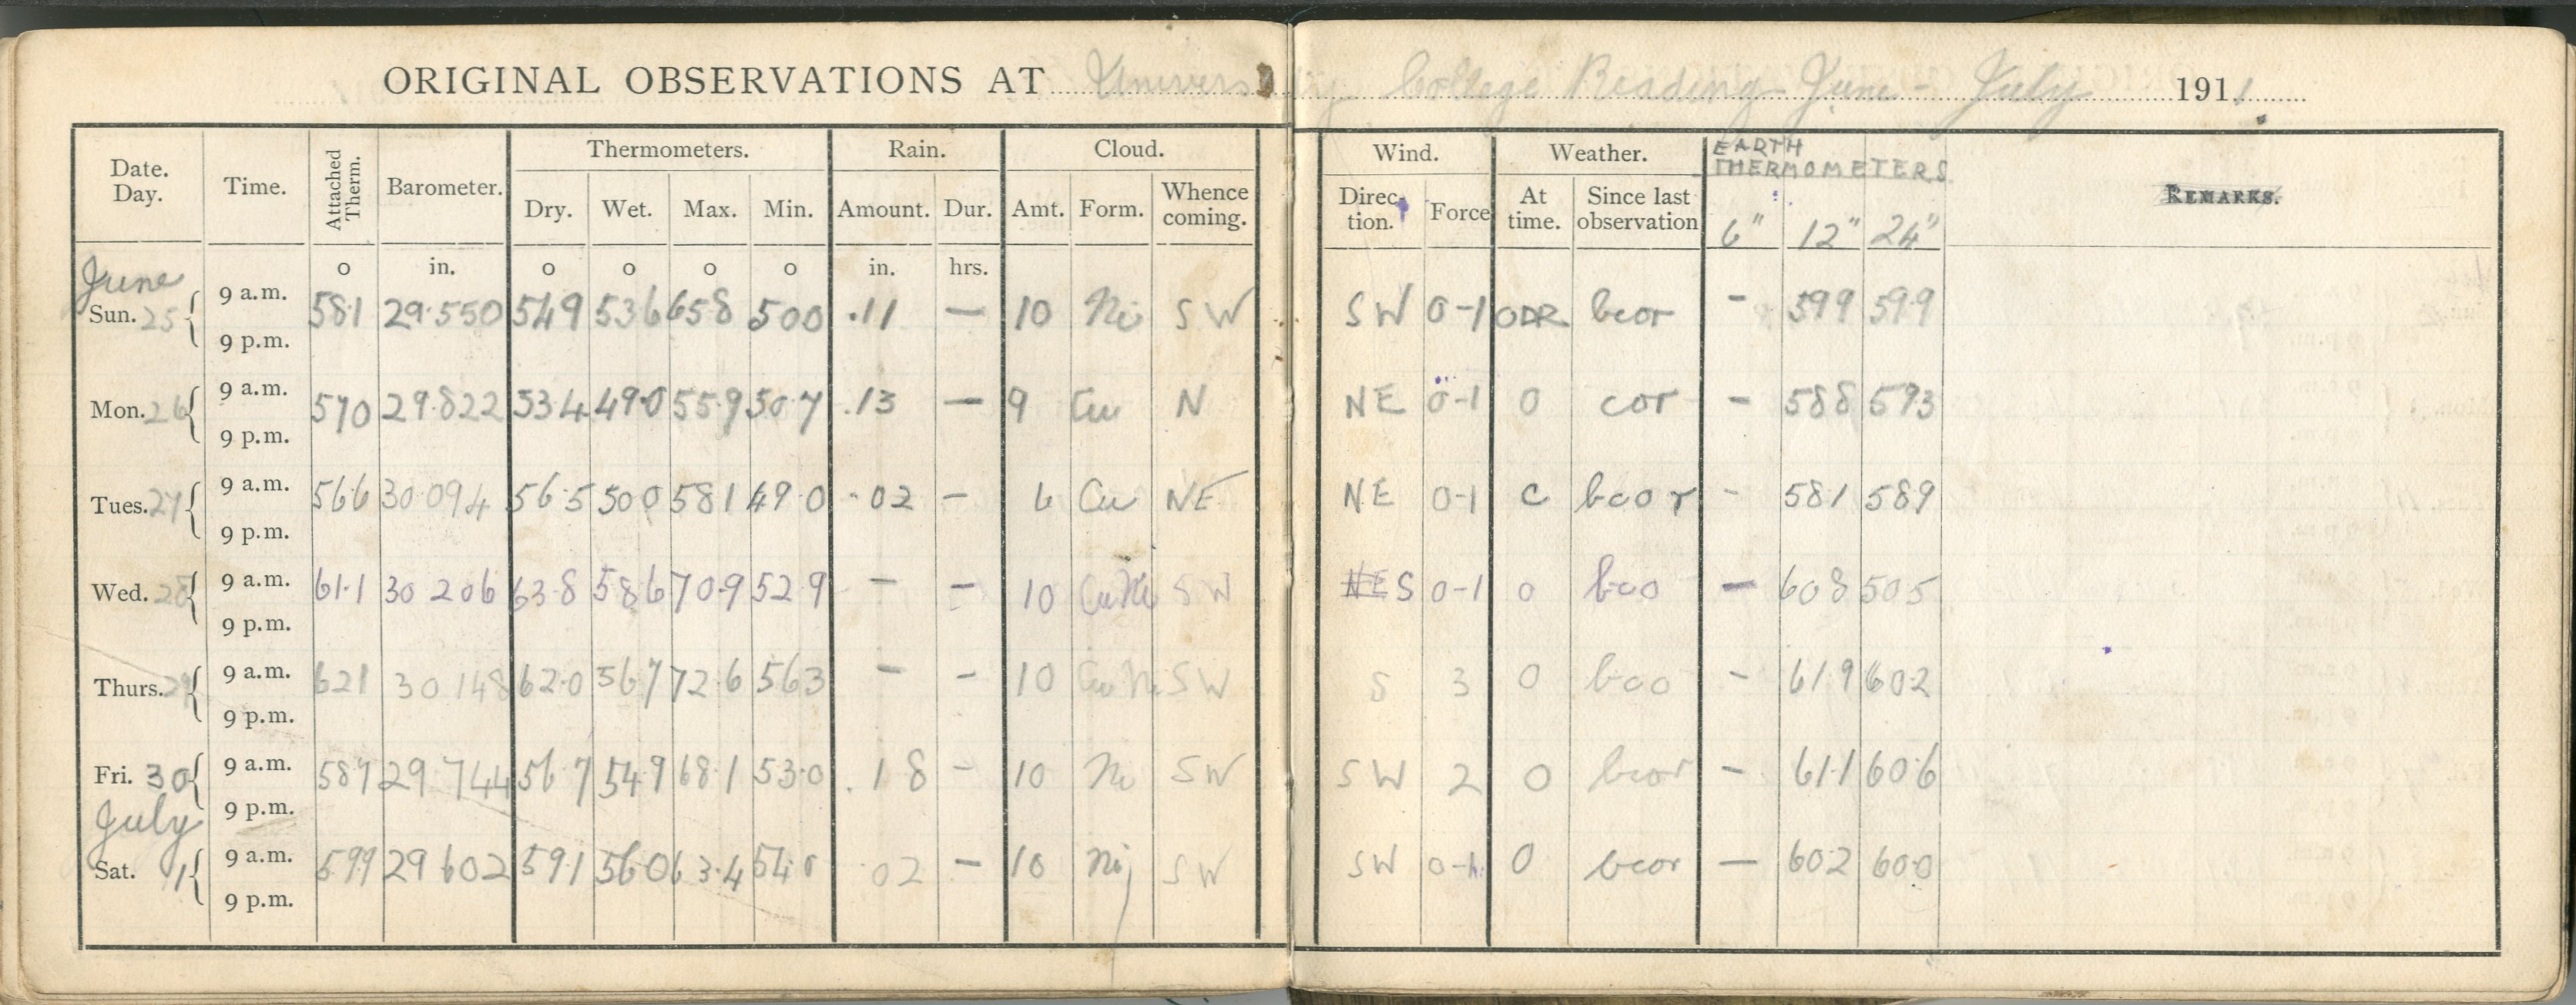 ORIGINAL OBSERVATIONS AT University College Reading June - July 1911
Date. Day. Time. Attached Therm. Barometer. Thermometers. Dry. Wet. Max. Min. Rain. Amount. Dur. Cloud. Amt. Form. Whence coming. Wind. Direction. Force Weather. At time. Since last observation EARTH THERMOMETERS 6" 12" 24" REMARKS.
o in. o o o o in. hrs.
June
Sun. 25 9 a.m. 58.1 29.550 54.9 53.6 65.8 50.0 .11 — 10 Ni SW SW 0-1 ODR bcor - 59.9 59.9
9 p.m.
Mon. 26 9 a.m. 57.0 29.822 53.4 49.0 55.9 50.7 .13 — 9 Cu N NE 0-1 0 cor - 58.8 59.3
9 p.m.
Tues. 27 9 a.m. 56.6 30.094 56.5 50.0 58.1 49.0 .02 - 6 Cu NE NE 0-1 c bcor - 58.1 58.9
9 p.m.
Wed. 28 9 a.m. 61.1 30 206 63.8 58.6 70.9 52.9 - - 10 CuNi SW NE S 0-1 0 bco - 60.8 50.5
9 p.m.
Thurs. 29 9 a.m. 62.1 30 148 62.0 56.7 72.6 56.3 - - 10 CuNi SW S 3 0 bco - 61.9 60.2
9 p.m.
Fri. 30 9 a.m. 58.7 29.744 56.7 54.9 68.1 53.0 .18 - 10 Ni SW SW 2 0 bcor - 61.1 60.6
9 p.m.
July
Sat. 1 9 a.m. 59.9 29 602 59.1 56.0 63.4 54.0 02 — 10 Ni SW SW 0-1 0 bcor — 60.2 60.0
9 p.m.